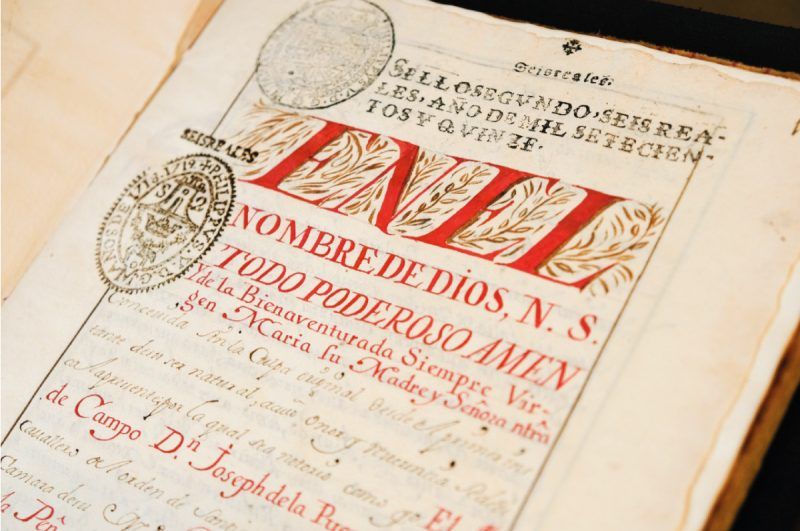 Seisreales.
SELLO SEGVNDO, SEIS REA-
LES, AÑO DE MIL SETECIEN-
TOS Y QVINZE.
SEISREALES
EN EL
NOMBRE DE DIOS, N. S.
TODO PODEROSO AMEN
Y de la Bienaventurada Siempre Vir-
gen Maria su Madre y Señora ntrâ
Concevida sin la Culpa original desde el primer ins
tante de su ser natural,
por la qual sea notorio como yo El
de Campo Dn. Joseph de la Pue
cavallero del orden de
Camara de su
la Peñ